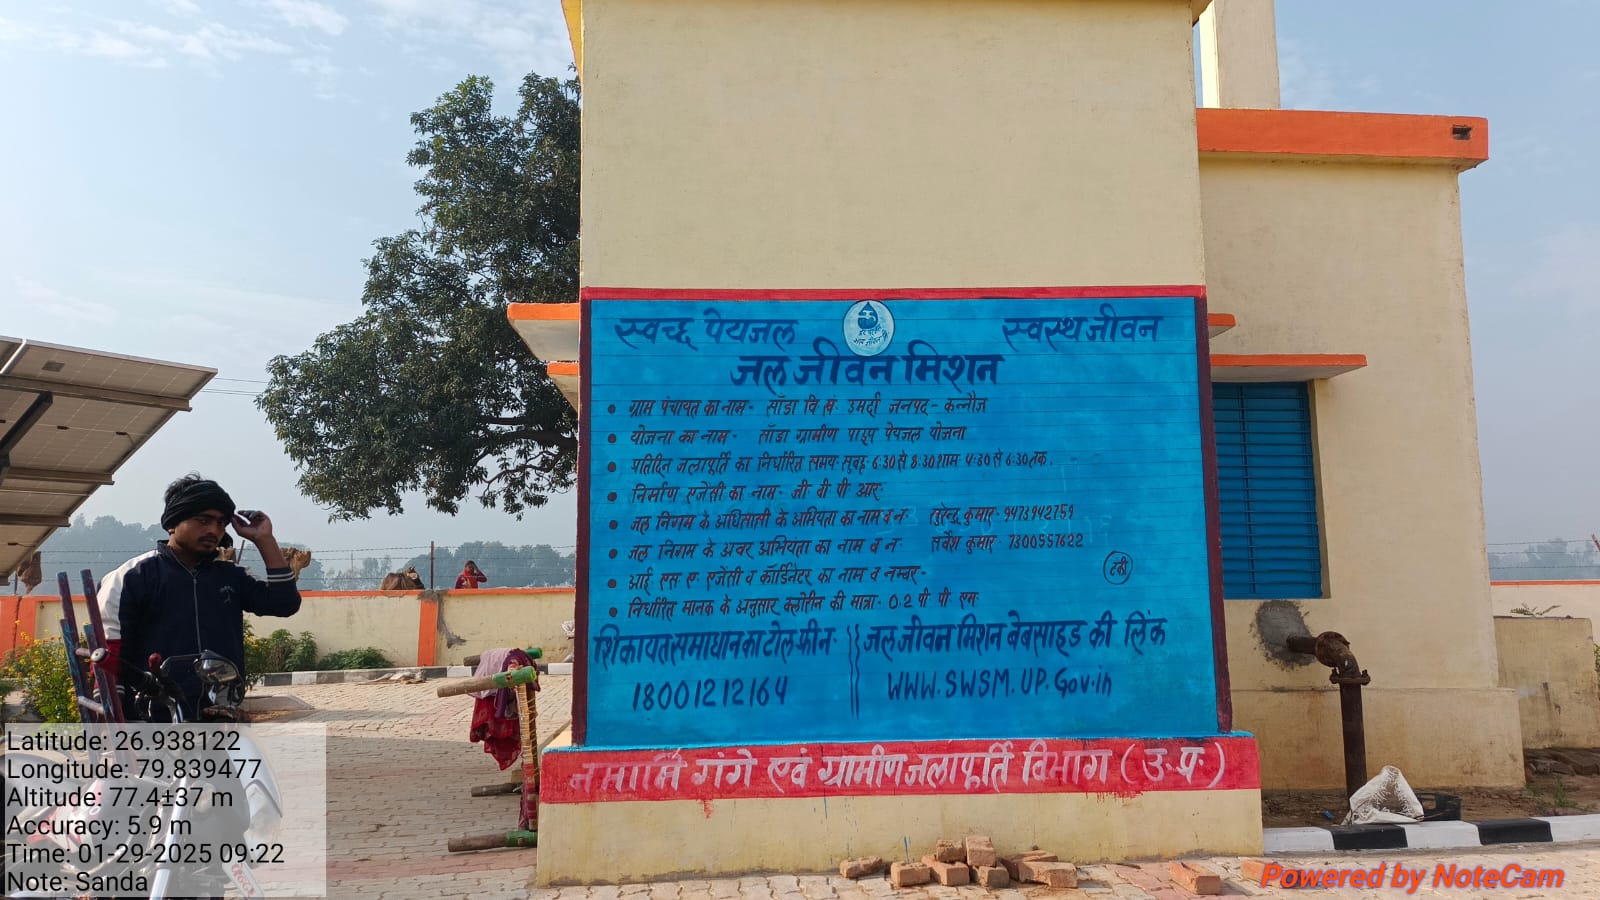 स्वच्छ पेयजल
स्वस्थ जीवन
जल जीवन मिशन
• ग्राम पंचायत का नाम- साँडा वि ख उमर्दा जनपद - कन्नौज
• योजना का नाम- साँडा ग्रामीण पाइप पेयजल योजना
• प्रतिदिन जलापूर्ति का निर्धारित समय- सुबह 6:30 से 8:30 शाम 4:30 से 6:30 तक.
• निर्माण एजेंसी का नाम- जी वी पी आर
• जल निगम के अधिशाषी के अभियंता का नाम व न- सुरेन्द्र कुमार- 9473942759
• जल निगम के अवर अभियंता का नाम व न- सर्वेश कुमार- 7300557622
• आई एस ए एजेंसी व कॉर्डिनेटर का नाम व नम्बर-
• निर्धारित मानक के अनुसार क्लोरीन की मात्रा- 0.2 पी पी एम
शिकायत समाधान का टोल फ्री न-
18001212164
जल जीवन मिशन बेबसाइड की लिंक
WWW.SWSM.UP.Gov.in
नमामि गंगे एवं ग्रामीण जलापूर्ति विभाग (उ.प्र.)
Latitude: 26.938122
Longitude: 79.839477
Altitude: 77.4±37 m
Accuracy: 5.9 m
Time: 01-29-2025 09:22
Note: Sanda
Powered by NoteCam